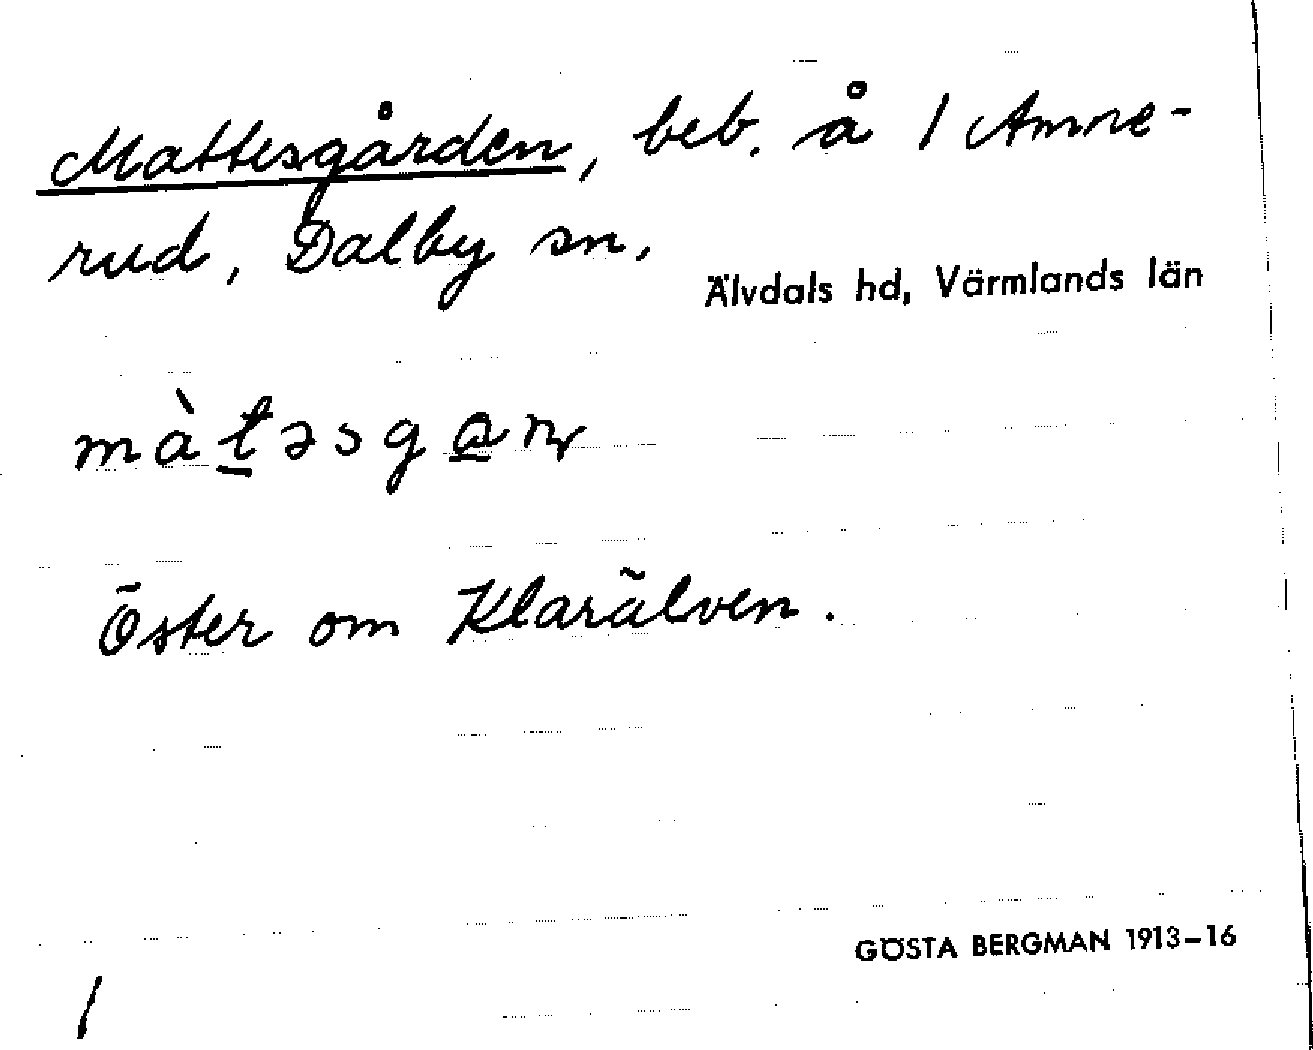 Mattesgården, beb. å 1 Amne-
rud, Dalby sn,
Älvdals hd, Värmlands län
màt̲əsga̲ɳ
Öster om Klarälven.
GÖSTA BERGMAN 1913–16